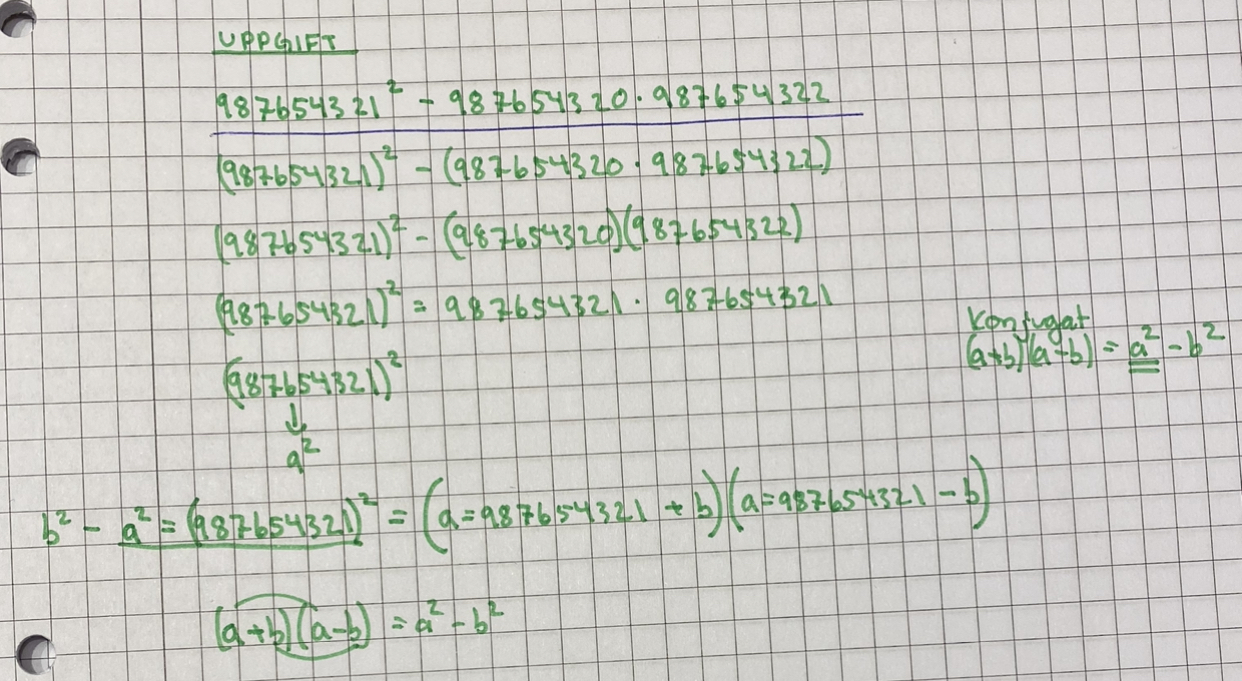 UPPGIFT
987654321² - 987654320 · 987654322
(987654321)² - (987654320 · 987654322)
(987654321)² - (987654320)(987654322)
(987654321)² = 987654321 · 987654321
Konjugat
(a+b)(a-b) = a² - b²
(987654321)²
↓
a²
b² - a² = (987654321)² = (a=987654321 + b)(a=987654321 - b)
(a+b)(a-b) = a² - b²